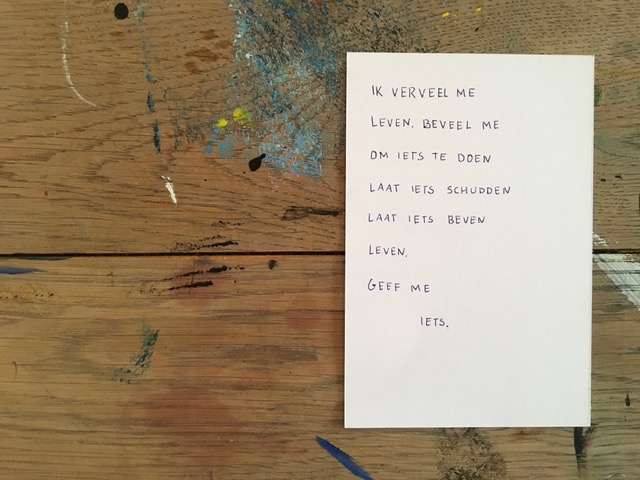 IK VERVEEL ME
LEVEN, BEVEEL ME
OM IETS TE DOEN
LAAT IETS SCHUDDEN
LAAT IETS BEVEN
LEVEN,
GEEF ME
IETS.